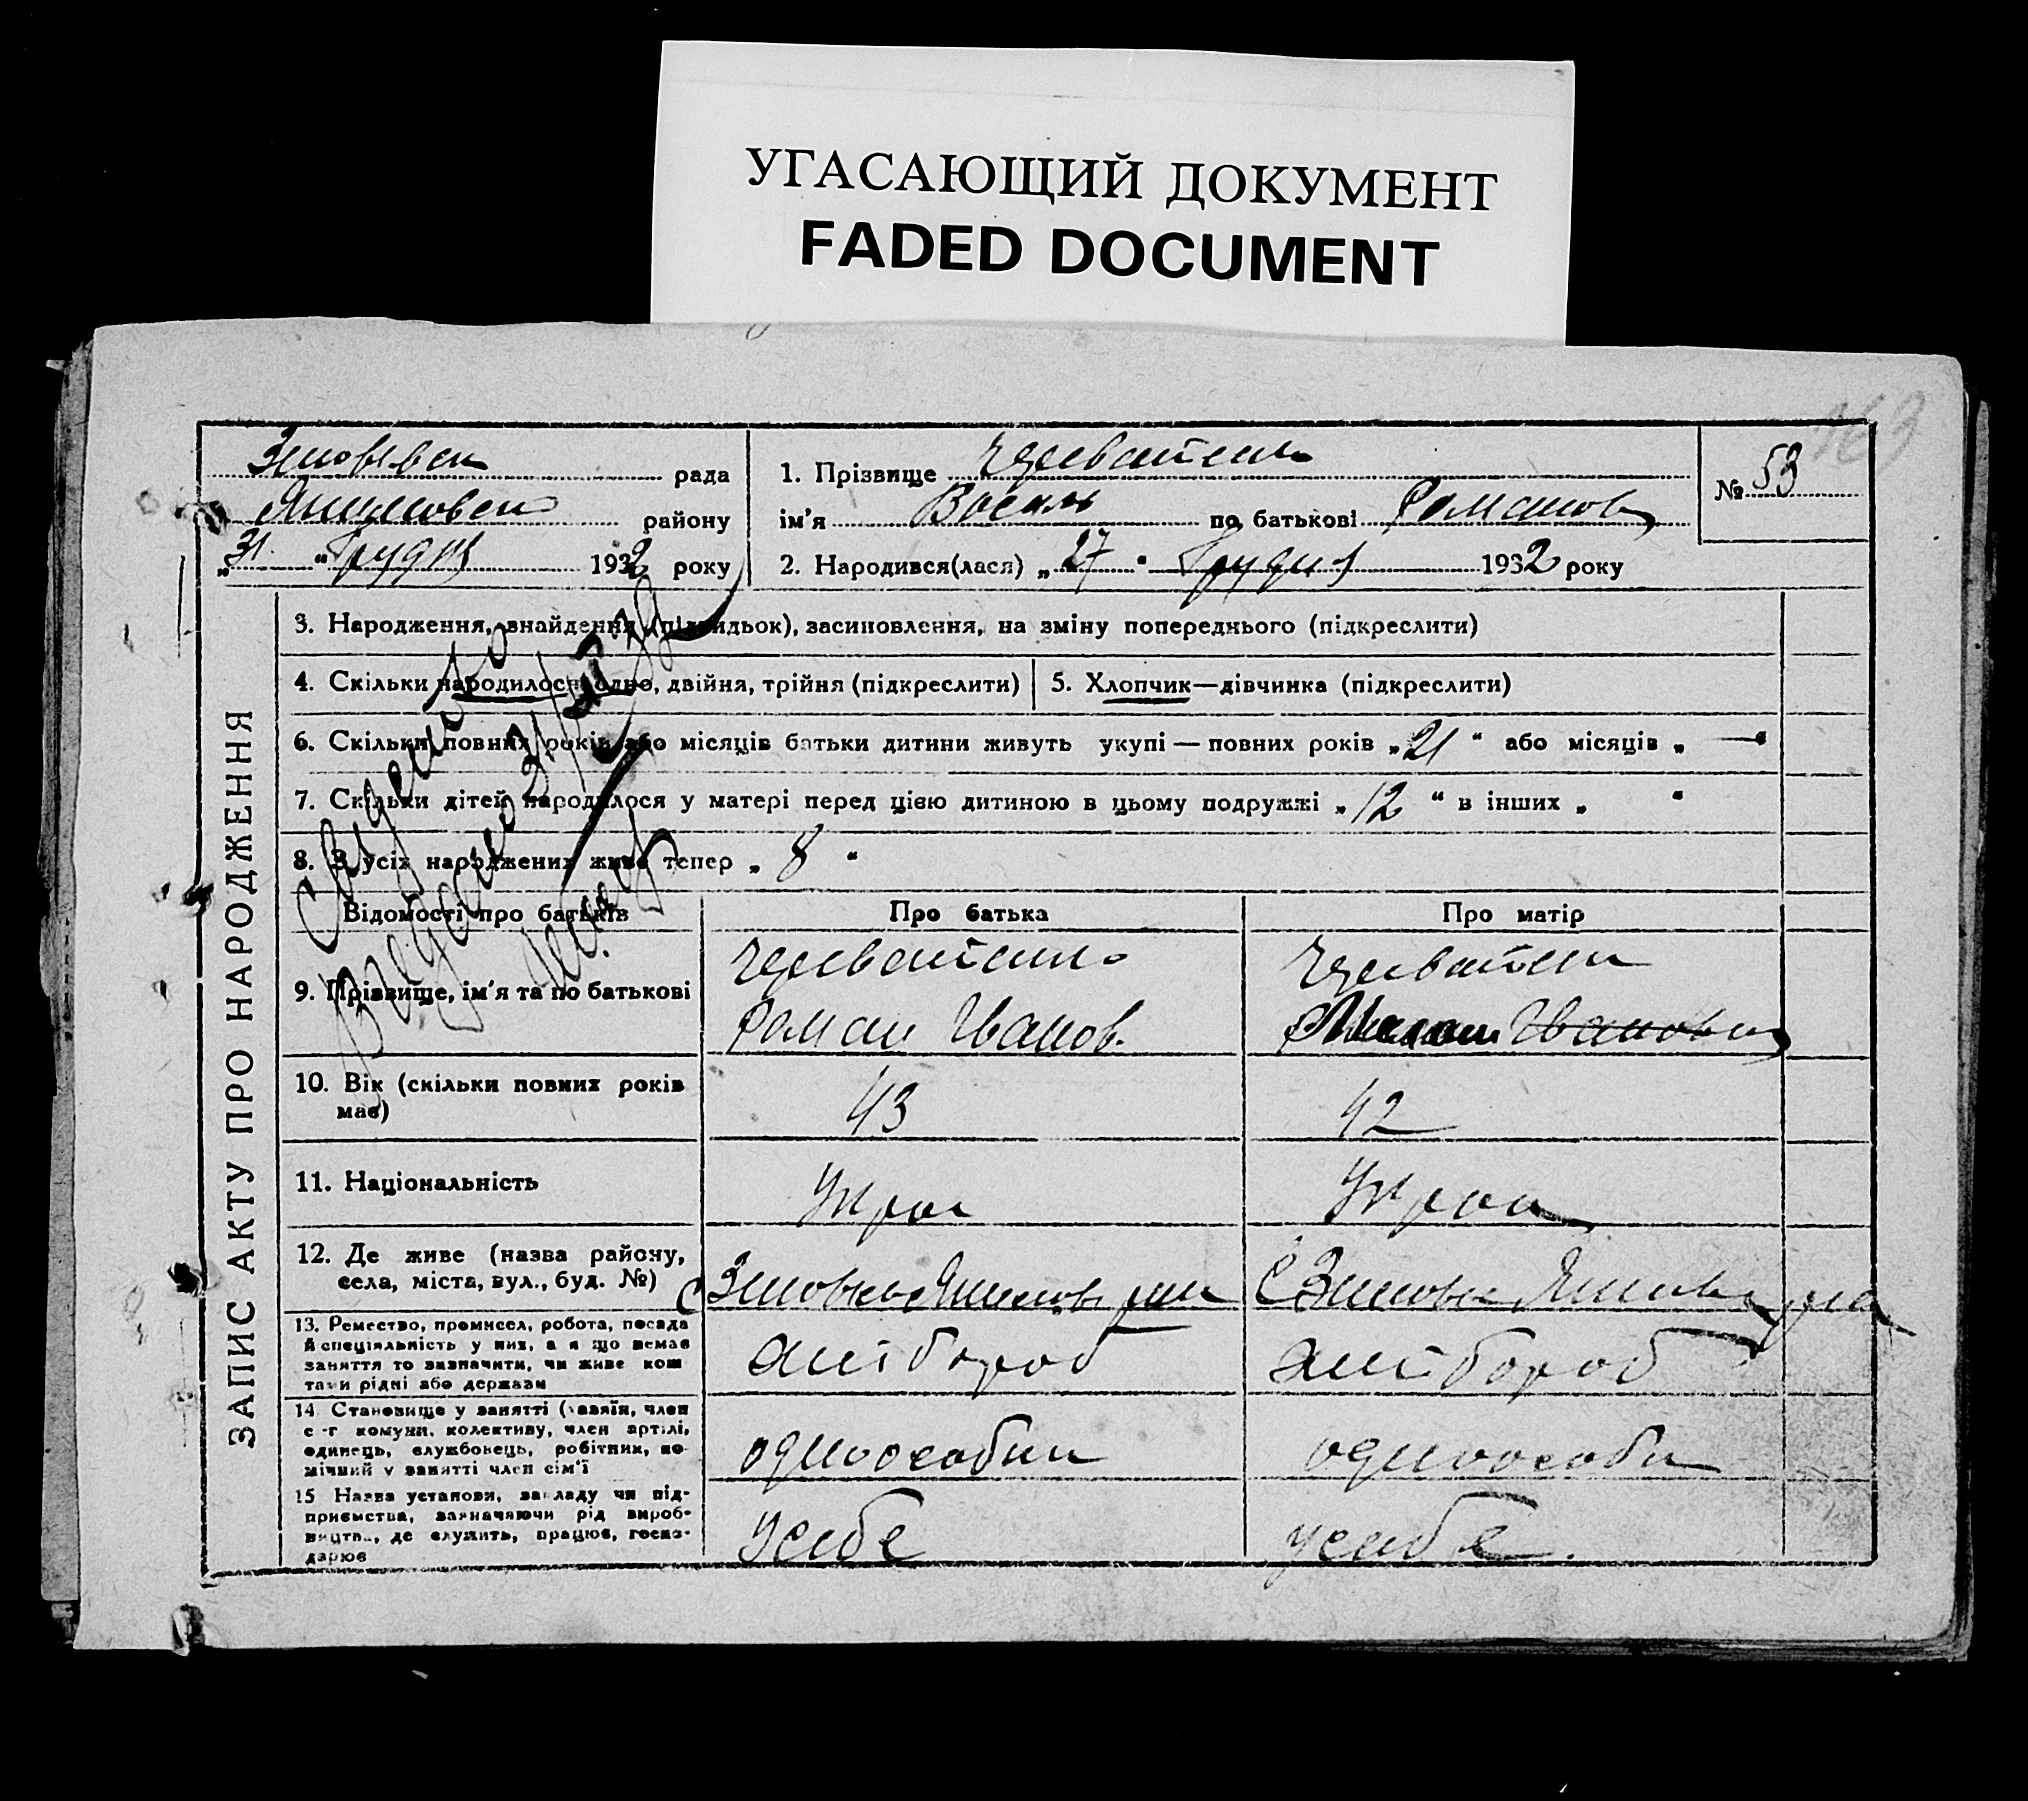 УГАСАЮЩИЙ ДОКУМЕНТ
FADED DOCUMENT
169
рада
району
„31 “ Грудня 1932 року
1. Прізвище Череватенко
ім’я Василь по батькові Романов
2. Народився(лася) „27 “ Грудня 1932 року
№ 53
ЗАПИС АКТУ ПРО НАРОДЖЕННЯ
3. Народження, знайдення (підкидьок), засиновлення, на зміну попереднього (підкреслити)
4. Скільки народилося: одно, двійня, трійня (підкреслити)
5. Хлопчик—дівчинка (підкреслити)
6. Скільки повних років або місяців батьки дитини живуть укупі — повних років „21 “ або місяців „ — “
7. Скільки дітей народилося у матері перед цією дитиною в цьому подружжі „12 “ в інших „ “
8. З усіх народжених живе тепер „ 8 “
Відомості про батьків
Про батька
Про матір
9. Прізвище, ім’я та по батькові
Череватенко
Роман Іванов.
Череватен
10. Вік (скільки повних років має)
43
42
11. Національність
Укра
Укра
12. Де живе (назва району, села, міста, вул., буд. №)
13. Ремество, промисел, робота, посада й спеціяльність у них, а якщо немає заняття то зазначити, чи живе коштами рідні або держави
хлібороб
хлібороб
14. Становище у занятті (хазяїн, член с-г комуни, колективу, член артілі, одинець, службовець, робітник, помічний у занятті член сім’ї
одноособни
одноособн
15. Назва установи, закладу чи підприємства, зазначаючи рід виробництва, де служить, працює, господарює
у себе
у себе.
Свидетельство
Видано 31/XII 32